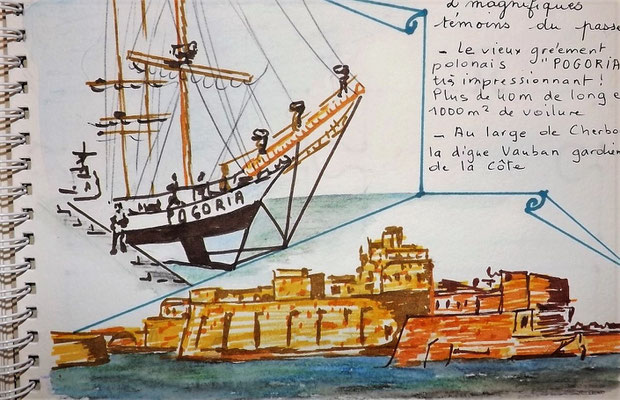 d'magnifiques
témoins du passé
- Le vieux gréement
polonais "POGORIA
très impressionnant !
Plus de 40m de long e
1000m² de voilure
- Au large de Cherbo
la digue Vauban gardien
de la Côte
POGORIA